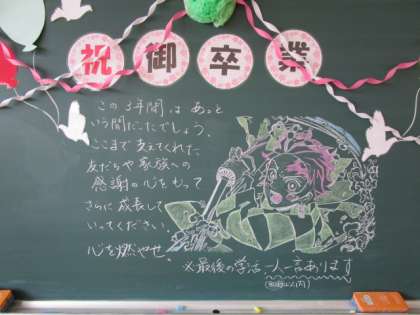 祝御卒業
この3年間はあっと
いう間だったでしょう。
ここまで支えてくれた
友だちや家族への
感謝の心をもって
さらに成長して
いってください。
心を燃やせ。
※最後の学活一人一言あります